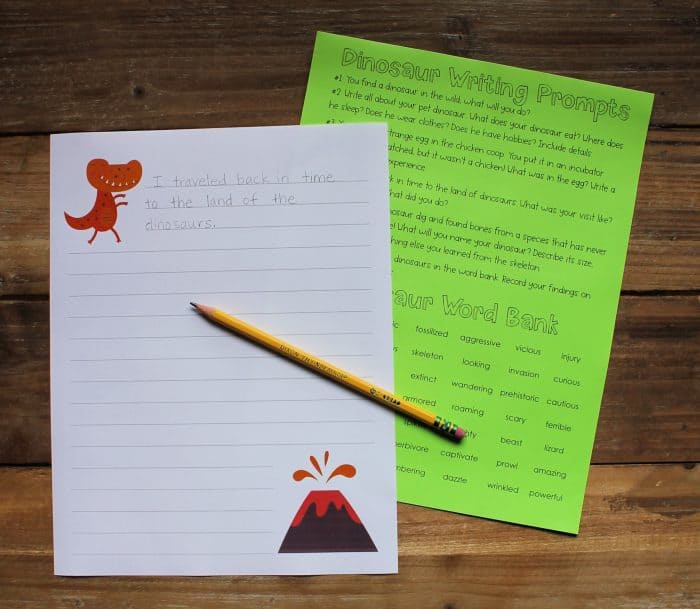 I traveled back in time
to the land of the
dinosaurs.
Dinosaur Writing Prompts
#1. You find a dinosaur in the wild, what will you do?
#2. Write all about your pet dinosaur. What does your dinosaur eat? Where does
he sleep? Does he wear clothes? Does he have hobbies? Include details.
strange egg in the chicken coop. You put it in an incubator
hatched, but it wasn't a chicken! What was in the egg? Write a
experience.
in time to the land of dinosaurs. What was your visit like?
hat did you do?
dig and found bones from a species that has never
What will you name your dinosaur? Describe its size,
else you learned from the skeleton.
dinosaurs in the word bank. Record your findings on
Word Bank
fossilized aggressive vicious injury
skeleton looking invasion curious
extinct wandering prehistoric cautious
armored roaming scary terrible
beast lizard
herbivore captivate prowl amazing
dazzle wrinkled powerful